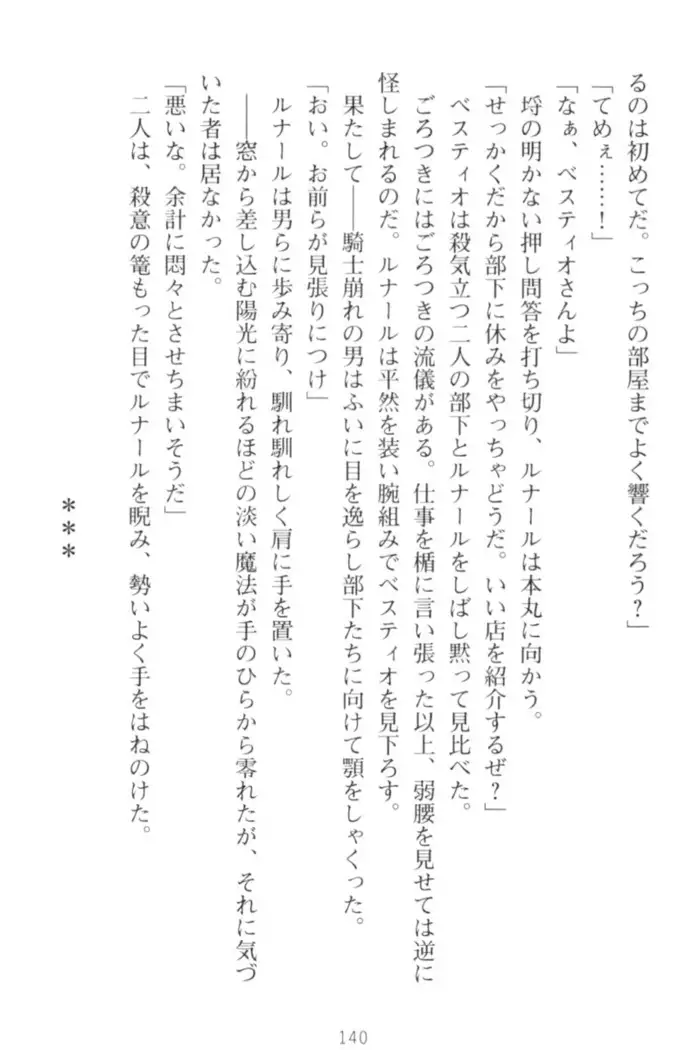 るのは初めてだ。こっちの部屋までよく響くだろう?」
「てめぇ……!」
「なぁ、ベスティオさんよ」
埒の明かない押し問答を打ち切り、ルナールは本丸に向かう。
「せっかくだから部下に休みをやっちゃどうだ。いい店を紹介するぜ?」
ベスティオは殺気立つ二人の部下とルナールをしばし黙って見比べた。
ごろつきにはごろつきの流儀がある。仕事を楯に言い張った以上、弱腰を見せては逆に
怪しまれるのだ。ルナールは平然を装い腕組みでベスティオを見下ろす。
果たして――騎士崩れの男はふいに目を逸らし部下たちに向けて顎をしゃくった。
「おい。お前らが見張りにつけ」
ルナールは男らに歩み寄り、馴れ馴れしく肩に手を置いた。
――窓から差し込む陽光に紛れるほどの淡い魔法が手のひらから零れたが、それに気づ
いた者は居なかった。
「悪いな。余計に悶々とさせちまいそうだ」
二人は、殺意の篭もった目でルナールを睨み、勢いよく手をはねのけた。
***
140